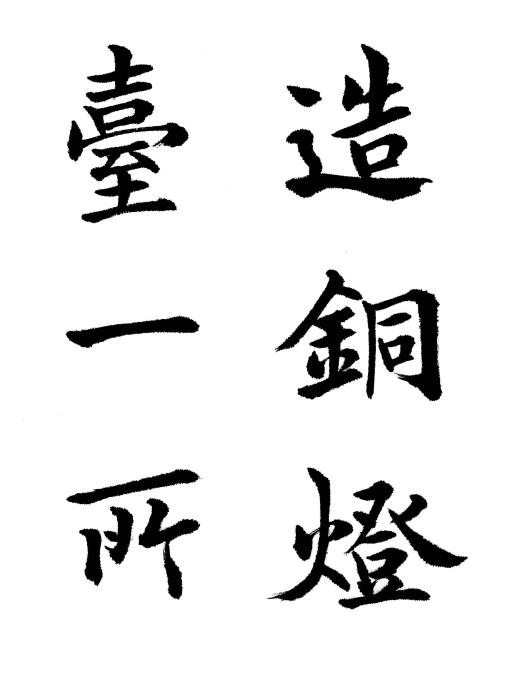 造銅燈
臺一所